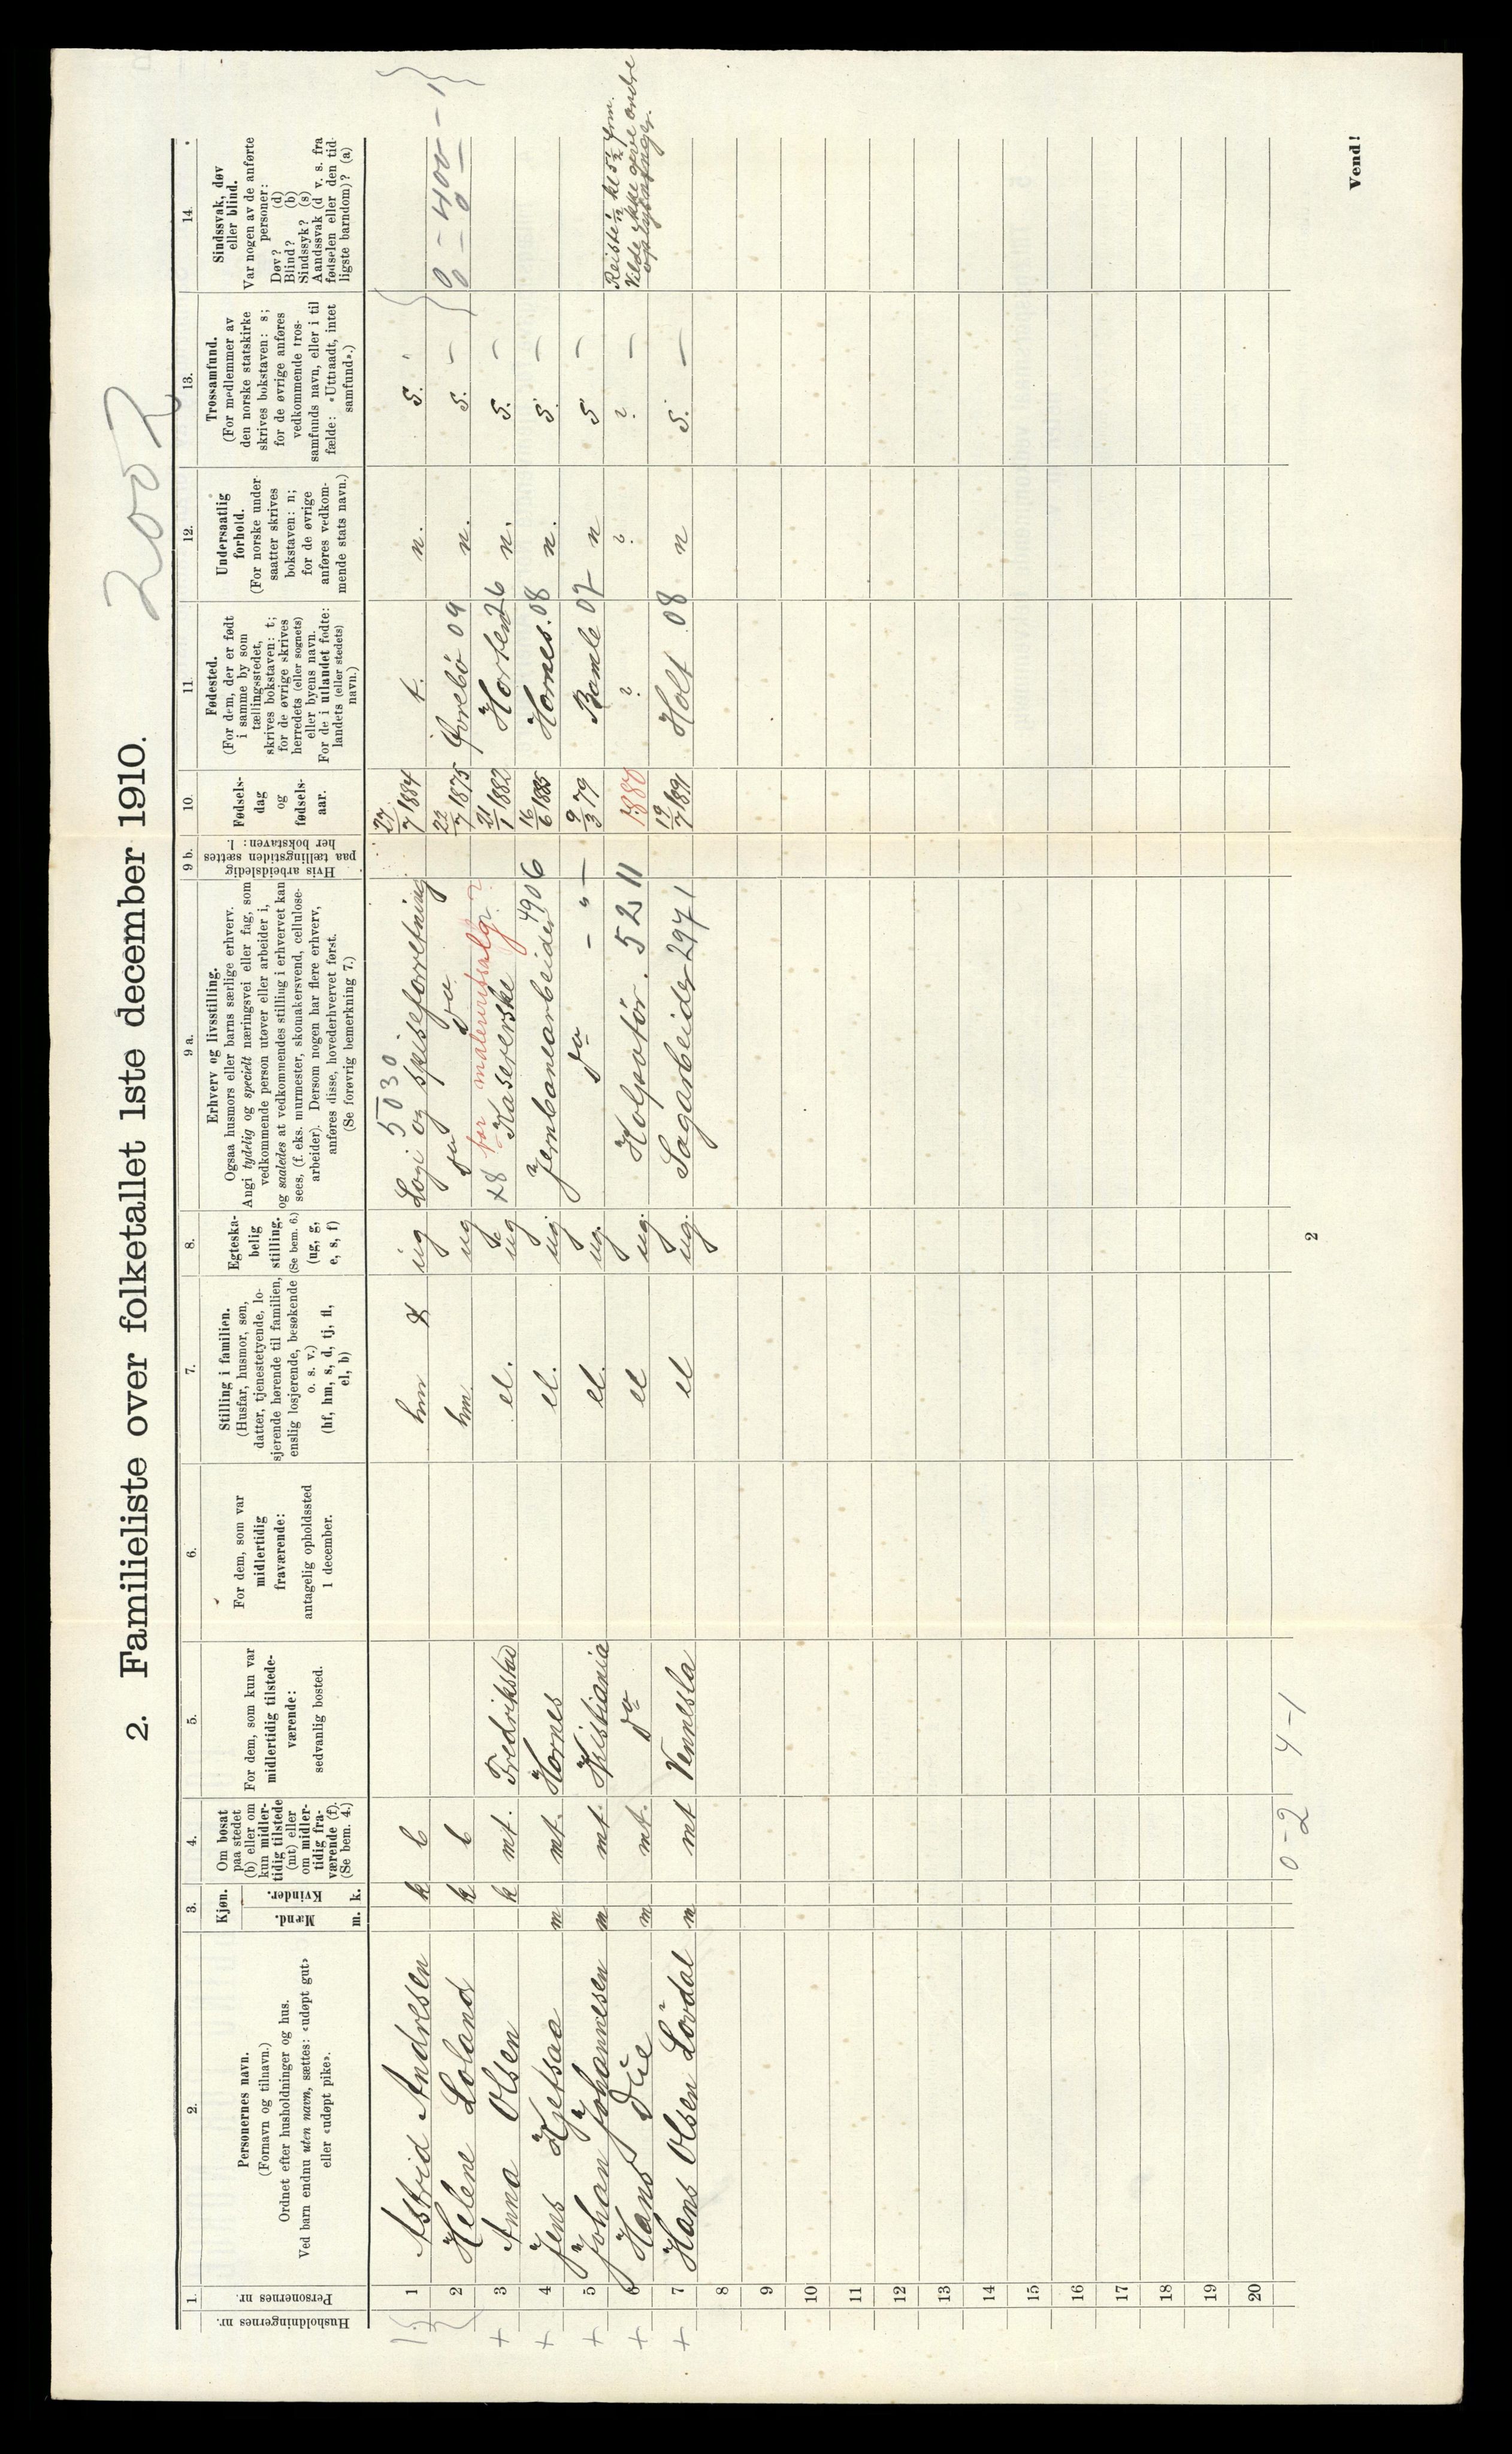 2002
2. Familieliste over folketallet 1ste december 1910.
1.
Husholdningernes nr.
Personernes nr.
2.
Personernes navn.
(Fornavn og tilnavn.)
Ordnet efter husholdninger og hus.
Ved barn endnu uten navn, sættes: «udøpt gut»
eller «udøpt pike».
3.
Kjøn.
Mænd.
Kvinder.
m.
k.
4.
Om bosat
paa stedet
(b) eller om
kun midler-
tidig tilstede
(mt) eller
om midler-
tidig fra-
værende (f).
(Se bem. 4.)
5.
For dem, som kun var
midlertidig tilstede-
værende:
sedvanlig bosted.
6.
For dem, som var
midlertidig
fraværende:
antagelig opholdssted
1 december.
7.
Stilling i familien.
(Husfar, husmor, søn,
datter, tjenestetyende, lo-
sjerende hørende til familien,
enslig losjerende, besøkende
o. s. v.)
(hf, hm, s, d, tj, fl,
el, b)
8.
Egteska-
belig
stilling.
(Se bem. 6.)
(ug, g,
e, s, f)
9 a.
Erhverv og livsstilling.
Ogsaa husmors eller barns særlige erhverv.
Angi tydelig og specielt næringsvei eller fag, som
vedkommende person utøver eller arbeider i,
og saaledes at vedkommendes stilling i erhvervet kan
sees, (f. eks. murmester, skomakersvend, cellulose-
arbeider). Dersom nogen har flere erhverv,
anføres disse, hovederhvervet først.
(Se forøvrig bemerkning 7.)
9 b.
Hvis arbeidsledig
paa tællingstiden sættes
her bokstaven: l.
10.
Fødsels-
dag
og
fødsels-
aar.
11.
Fødested.
(For dem, der er født
i samme by som
tællingsstedet,
skrives bokstaven: t;
for de øvrige skrives
herredets (eller sognets)
eller byens navn.
For de i utlandet fødte:
landets (eller stedets)
navn.)
12.
Undersaatlig
forhold.
(For norske under-
saatter skrives
bokstaven: n;
for de øvrige
anføres vedkom-
mende stats navn.)
13.
Trossamfund.
(For medlemmer av
den norske statskirke
skrives bokstaven: s;
for de øvrige anføres
vedkommende tros-
samfunds navn, eller i til
fælde: «Uttraadt, intet
samfund».)
14.
Sindssvak, døv
eller blind.
Var nogen av de anførte
personer:
Døv? (d)
Blind? (b)
Sindssyk? (s)
Aandssvak (d v. s. fra
fødselen eller den tid-
ligste barndom)? (a)
5030
1 Astrid Andresen k b hm ug Logi og spiseforretning 27/7 1884 t. n. s.
2 Helene Loland k b hm ug do do 22/7 1875 Øvrebö 09 n. s. –
3 Anna Olsen k mt. Fredrikstad el. ug Kasererske 21/1 1882 Horten 26 n. s. –
4 Jens Kjetsaa m mt. Hornes el. ug. Jernbanearbeider 4906 16/6 1885 Hornes. 08 n. s. –
5 Johan Johannesen m mt. Kristiania el. ug. do – " – 9/3 79 Bamle 07 n s –
6 Hans Due m mt. do el ug. 5211 1880 ? ? ? – Reiste 1/12 kl 5½ frm.
Vilde ikke give andre
oplysninger.
7 Hans Olsen Lövdal m mt Vennesla el ug. Sagarbeider 2971 19/7 1891 Holt 08 n s. –
8
9
10
11
12
13
14
15
16
17
18
19
20
0-2 4-1
2
Vend!